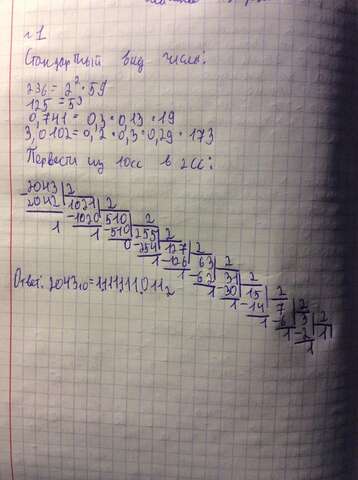 №1
Стандартный вид числа:
236 = 2² · 59
125 = 5³
0,741 = 0,3 · 0,13 · 19
3,0102 = 0,2 · 0,3 · 0,29 · 173
Первести из 10сс в 2сс:
-2043 | 2
2042 | 1021 | 2
1 -1020 | 510 | 2
1 -510 | 255 | 2
0 -254 | 127 | 2
1 -126 | 63 | 2
1 -62 | 31 | 2
1 -30 | 15 | 2
1 -14 | 7 | 2
1 -6 | 3 | 2
1 -2 | 1
1
Ответ: 2043₁₀ = 11111111011₂